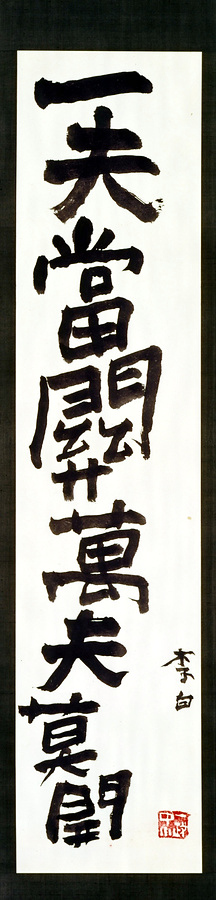 一夫當關萬夫莫開
李白